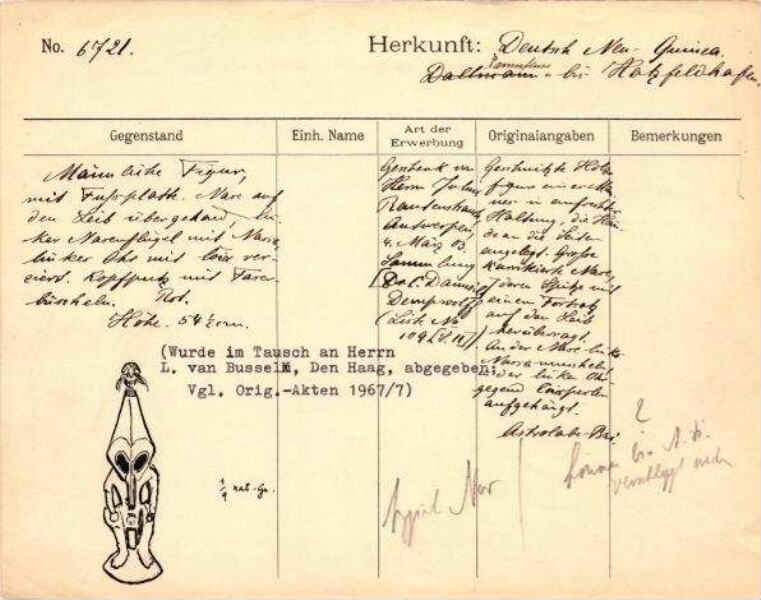 No. 6721.
Herkunft: Deutsch Neu-Guinea.
Dallmann - bis Hatzfeldhafen.
Gegenstand
Einh. Name
Art der Erwerbung
Originalangaben
Bemerkungen
Männliche Figur,
mit Fussplatte. Nase auf
den Leib übergehend, lin-
ker Nasenflügel mit Nassa
linker Ohr mit Coix ver-
ziert. Kopfputz mit Faser-
büscheln. Rot.
Höhe. 54 ½ cm.
Geschenk von
Herrn
Antwerpen,
4. März 03.
Sammlung
Dempwolff
(Liste No
109
Geschnitzte Holz-
figur eines Man-
nes in aufrechter
Haltung, die Hän-
de an die Seiten
angelegt. Große
karrikierte Nase,
deren Spitze mit
einem Fortsatz
auf den Leib
herüberragt.
An der Nase links
Nassamuscheln,
der linken Ohr-
gegend Coixperlen
aufgehängt.
Astrolabe-Bai.
(Wurde im Tausch an Herrn
L. van Bussel, Den Haag, abgegeben;
Vgl. Orig.-Akten 1967/7)
nat. Gr.
?